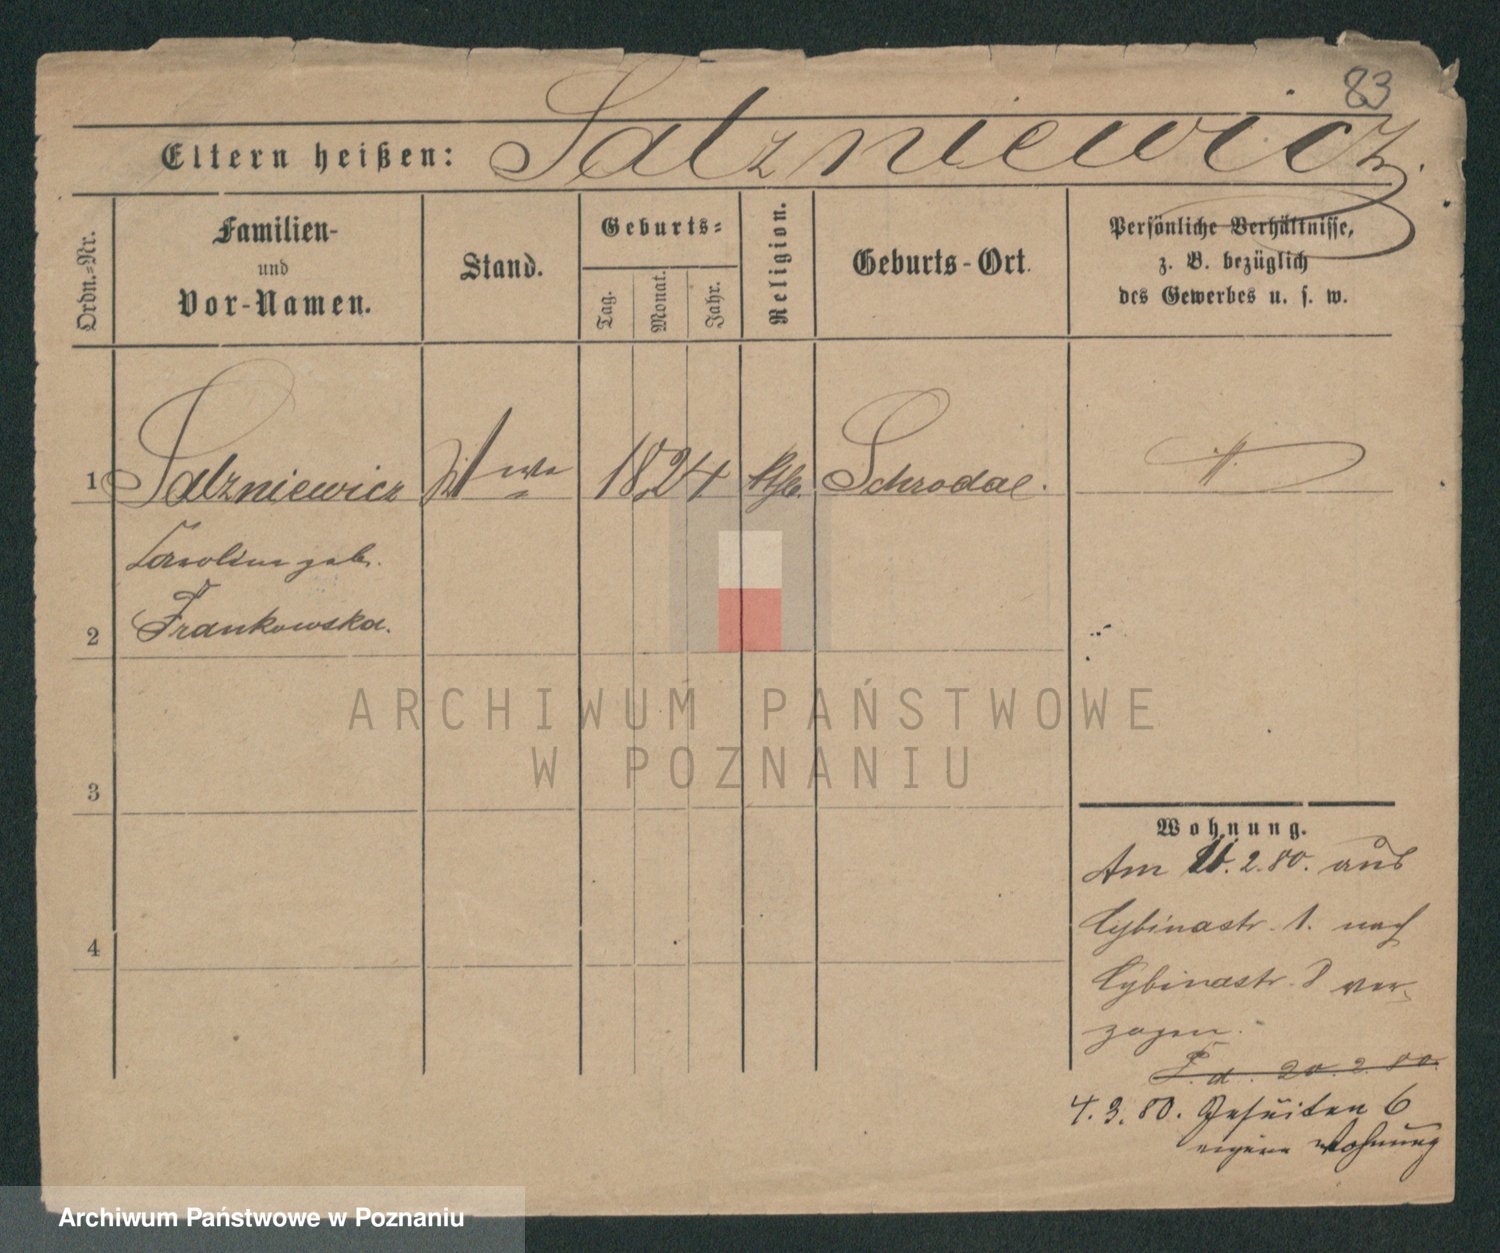 83
Eltern heißen: Salzniewicz.
Ordn.-Nr.
Familien-
und
Vor-Namen.
Stand.
Geburts-
Tag.
Monat.
Jahr.
Religion.
Geburts-Ort.
Persönliche Verhältnisse,
z. B. bezüglich
des Gewerbes u. s. w.
1 Salzniewicz Wwe 1824 kth. Schrodae.
Caroline geb.
2 Frankowska.
3
4
ARCHIWUM PAŃSTWOWE
W POZNANIU
Wohnung.
Am 2.80. aus
Cybinastr. 1. nach
Cybinastr. 8 ver-
zogen.
20.2.80.
4.3.80. Jesuiten 6
eigene Wohnung
Archiwum Państwowe w Poznaniu